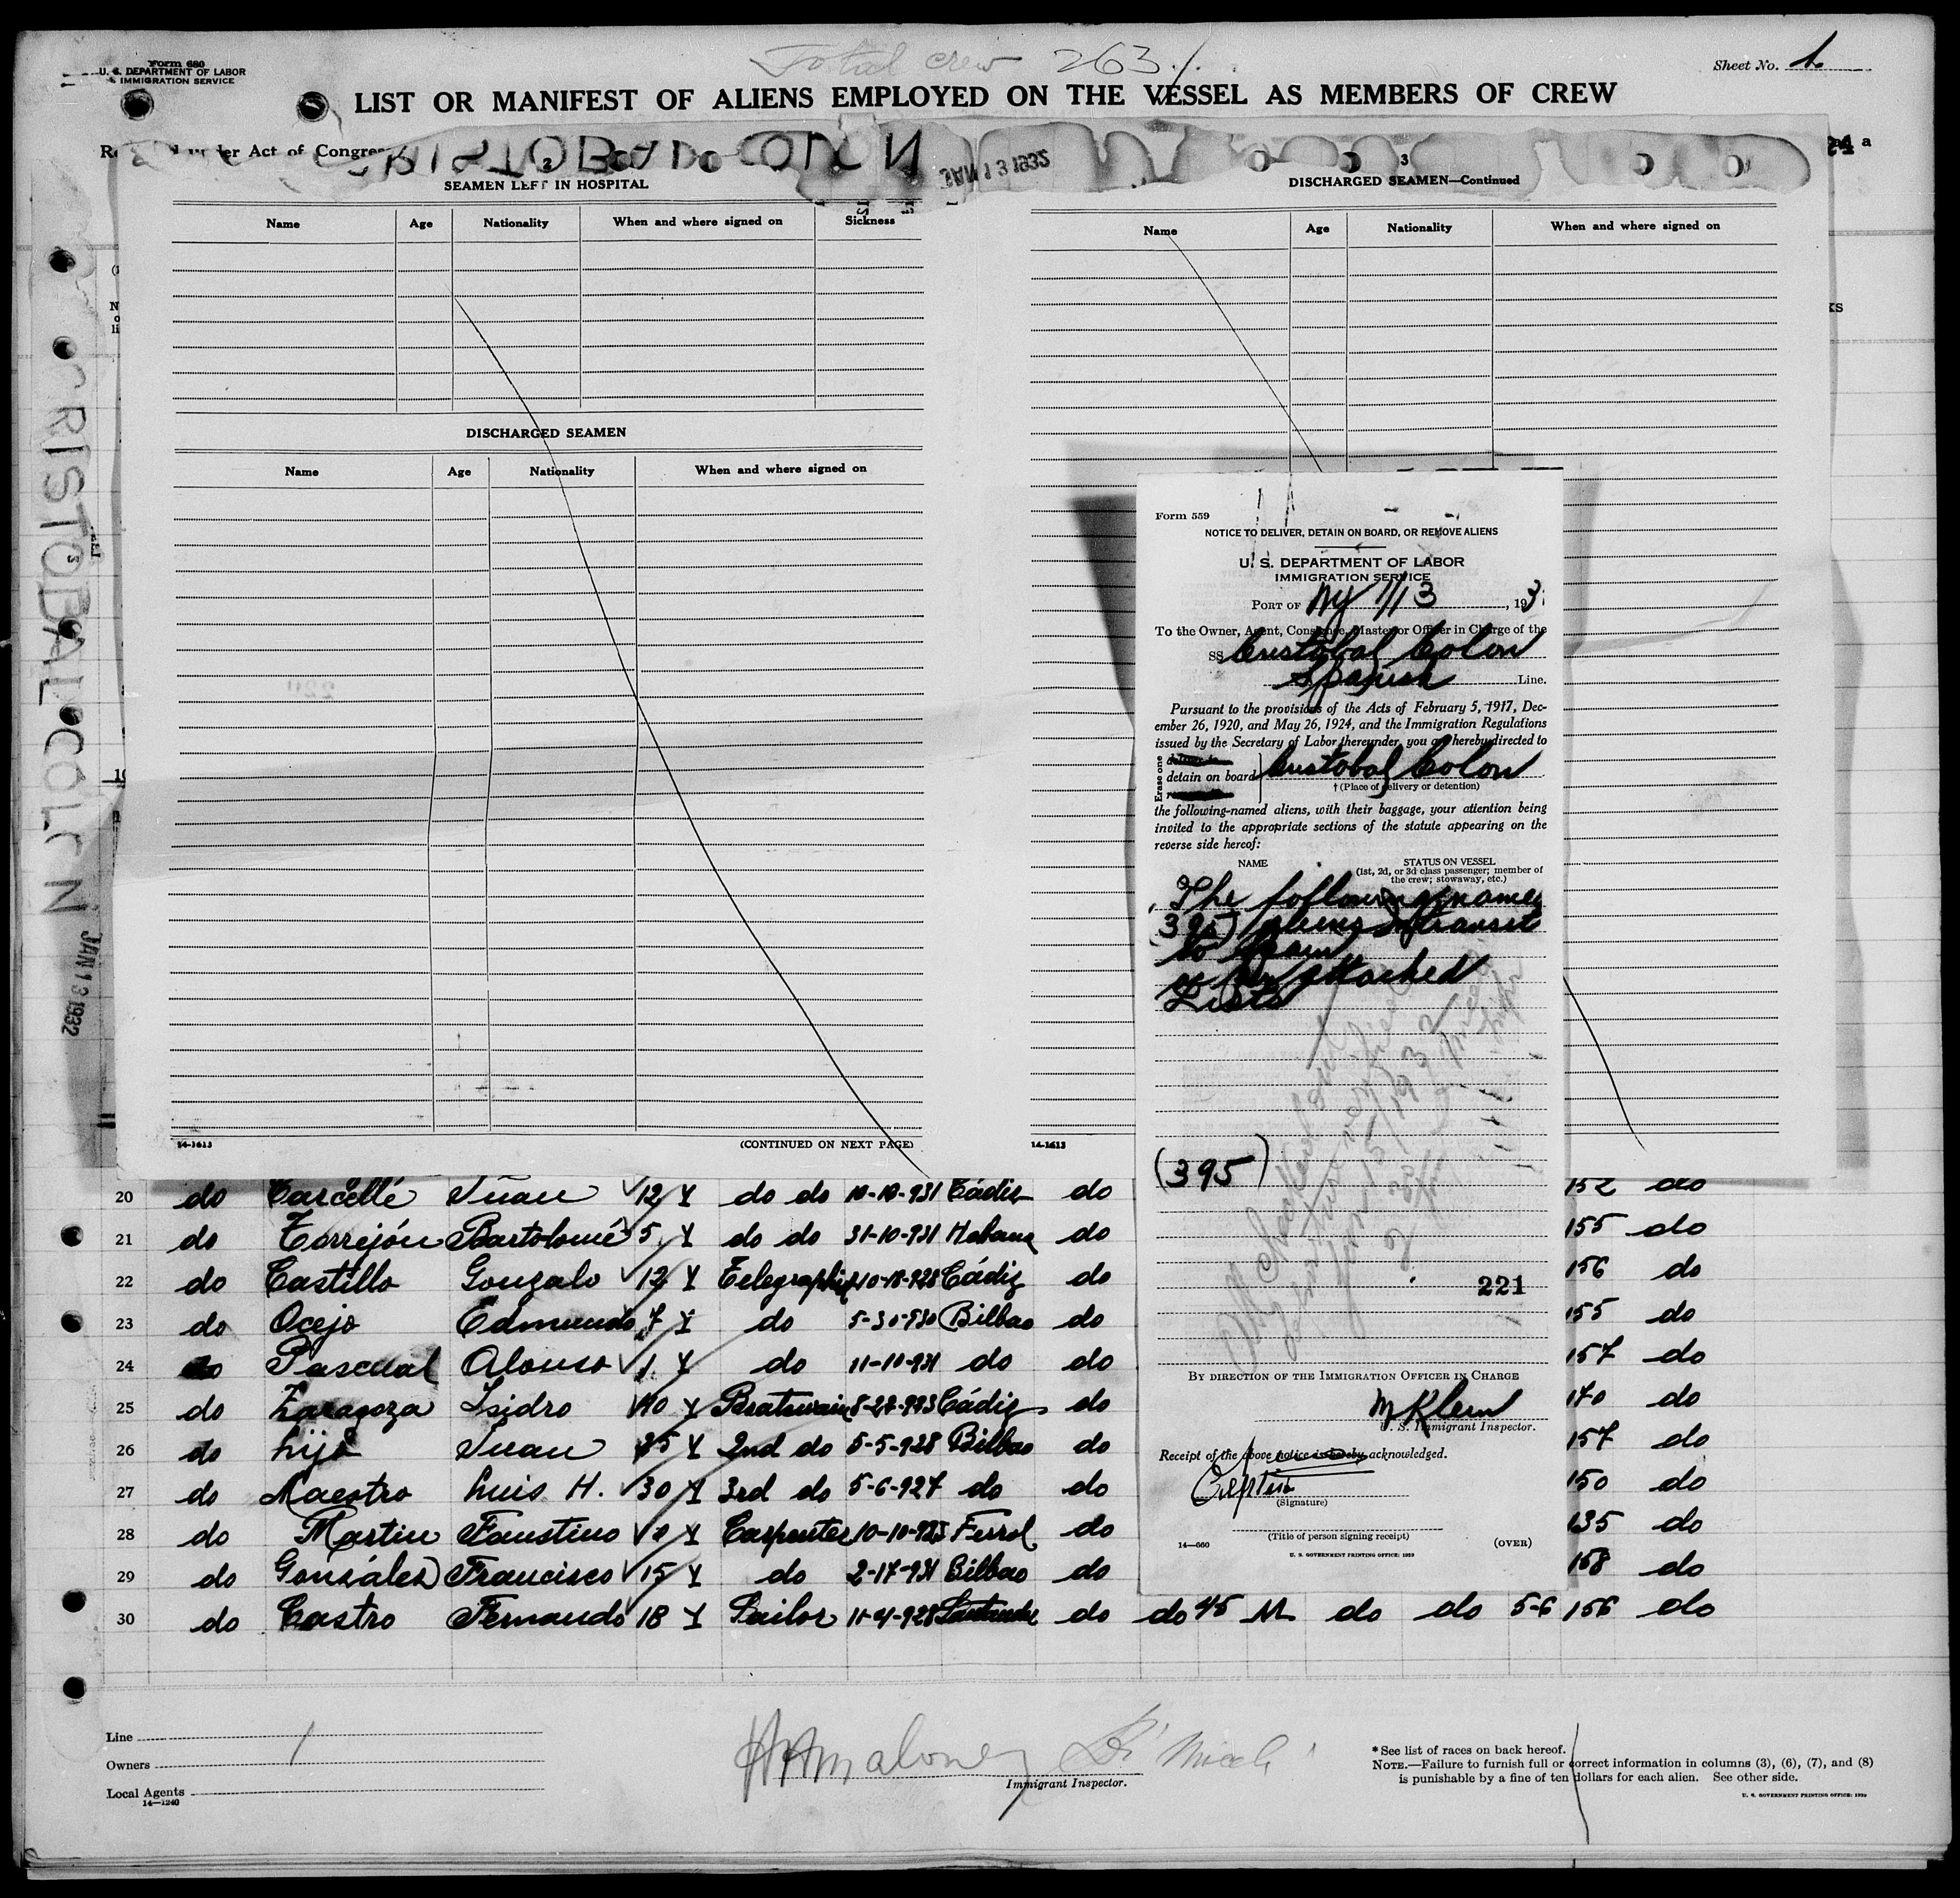 Form 680
U. S. DEPARTMENT OF LABOR
IMMIGRATION SERVICE
Total crew 263
Sheet No. 1
LIST OR MANIFEST OF ALIENS EMPLOYED ON THE VESSEL AS MEMBERS OF CREW
er Act of Congre
RISTOBAL COLON
JAN 13 1932
2
SEAMEN LEFT IN HOSPITAL
Name Age Nationality When and where signed on Sickness
DISCHARGED SEAMEN
Name Age Nationality When and where signed on
14-1613
(CONTINUED ON NEXT PAGE)
3
DISCHARGED SEAMEN—Continued
Name Age Nationality When and where signed on
14-1613
RISTOBAL COLON
JAN 13 1932
Form 559
NOTICE TO DELIVER, DETAIN ON BOARD, OR REMOVE ALIENS
U. S. DEPARTMENT OF LABOR
IMMIGRATION SERVICE
PORT OF NY 1/13, 193
To the Owner, Agent, Consignee, Master or Officer in Charge of the
SS Cristobal Colon
Spanish Line.
Pursuant to the provisions of the Acts of February 5, 1917, Dec-
ember 26, 1920, and May 26, 1924, and the Immigration Regulations
issued by the Secretary of Labor thereunder, you are hereby directed to
Erase one
detain on board Cristobal Colon
† (Place of delivery or detention)
the following-named aliens, with their baggage, your attention being
invited to the appropriate sections of the statute appearing on the
reverse side hereof:
NAME STATUS ON VESSEL
(1st, 2d, or 3d class passenger; member of
the crew; stowaway, etc.)
The following names
(395) aliens in transit
to Spain
as per attached
Lists
(395)
221
BY DIRECTION OF THE IMMIGRATION OFFICER IN CHARGE
M Klein
U. S. Immigrant Inspector.
Receipt of the above notice is hereby acknowledged.
(Signature)
(Title of person signing receipt)
14—660
(OVER)
U. S. GOVERNMENT PRINTING OFFICE: 1929
20 do Carcellé Juan 12 Y do do 10-10-931 Cádiz do 152 do
21 do Torrejón Bartolomé 5 Y do do 31-10-931 Habana do 155 do
22 do Castillo Gonzalo 12 Y 10-10-928 Cádiz do 156 do
23 do Ocejo Edmundo 7 Y do 5-30-930 Bilbao do 155 do
24 do Pascual Alonso 1 Y do 11-10-931 do do 157 do
25 do Zaragoza Isidro 10 Y Boatswain Cádiz do 170 do
26 do Lijo Juan 25 Y 2nd do 5-5-928 Bilbao do 157 do
27 do Maestro Luis H. 30 Y 3rd do 5-6-927 do do 150 do
28 do Martin Faustino Y Carpenter Ferrol do 135 do
29 do González Francisco 15 Y do 2-17-931 Bilbao do 158 do
30 do Castro Fernando 18 Y Sailor Santander do do 45 M do do 5-6 156 do
Line
Owners
Local Agents
14—1240
Immigrant Inspector.
* See list of races on back hereof.
NOTE.—Failure to furnish full or correct information in columns (3), (6), (7), and (8)
is punishable by a fine of ten dollars for each alien. See other side.
U. S. GOVERNMENT PRINTING OFFICE: 1929